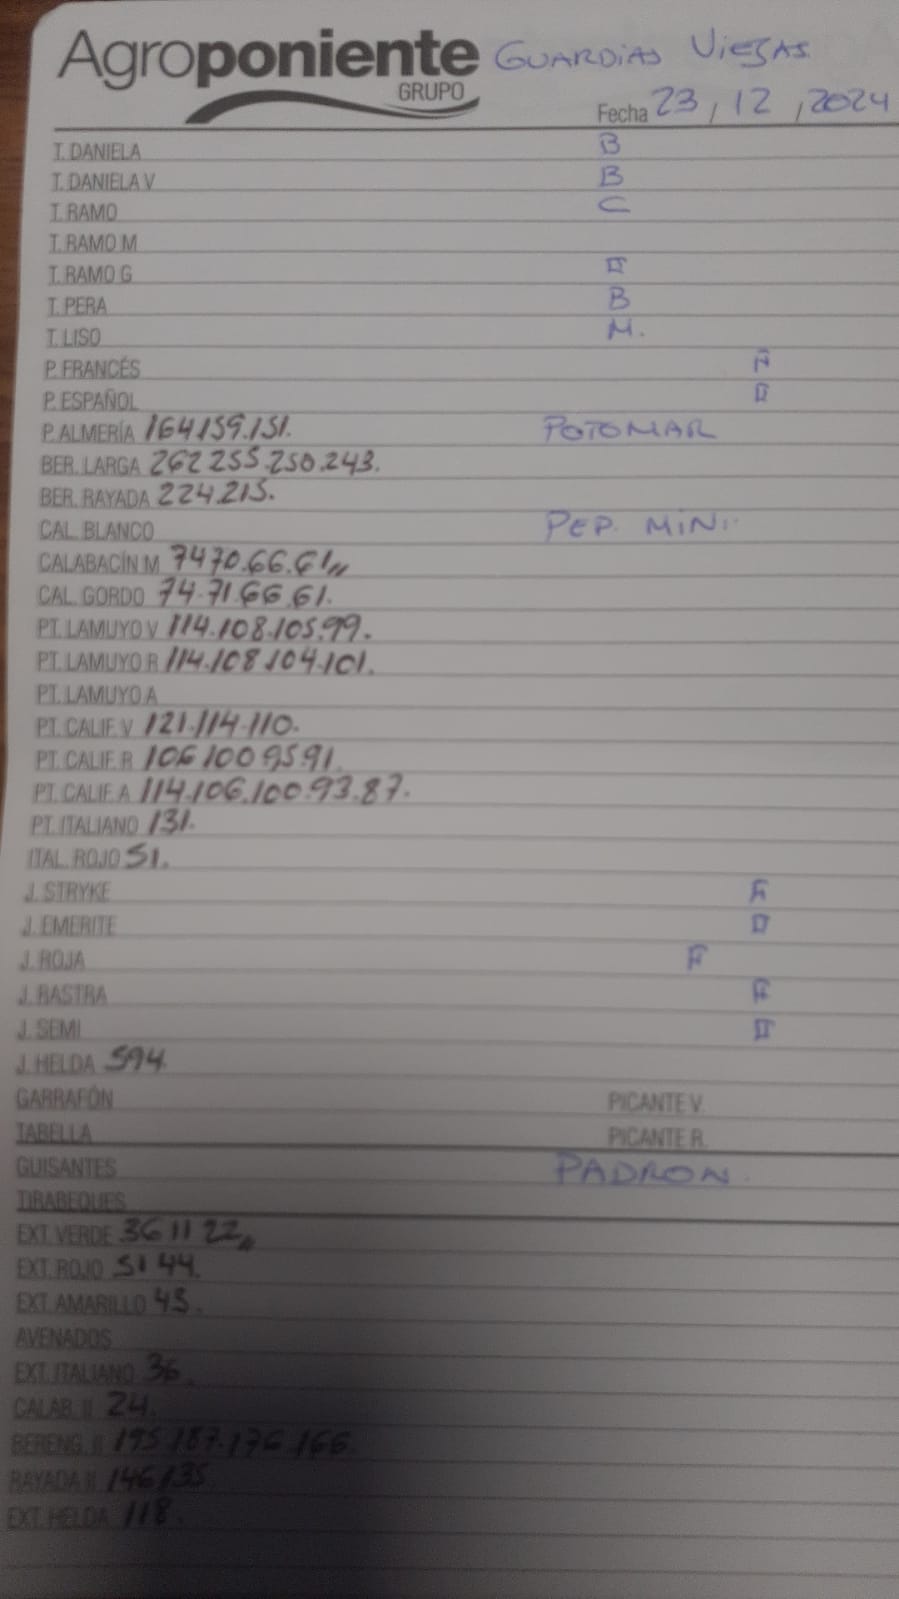 Agroponiente GUARDIAS VIEJAS
GRUPO
Fecha 23, 12, 2024
T. DANIELA B
T. DANIELA V B
T. RAMO C
T. RAMO M
T. RAMO G II
T. PERA B
T. LISO M.
P. FRANCÉS
P. ESPAÑOL II
P. ALMERÍA 164.159.151. POTOMAR
BER. LARGA 262 255.250.243.
BER. RAYADA 224.215.
CAL. BLANCO PEP. MINI
CALABACÍN M 74 70.66.61
CAL. GORDO 74.71.66.61.
PT. LAMUYO V 114.108.105.99.
PT. LAMUYO R 114.108.104.101.
PT. LAMUYO A
PT. CALIF. V 121.114.110.
PT. CALIF. R 106 100 95 91.
PT. CALIF. A 114.106.100.93.87.
PT. ITALIANO 131.
ITAL. ROJO 51.
J. STRYKE
J. EMERITE II
J. ROJA F
J. RASTRA
J. SEMI II
J. HELDA 594.
GARRAFÓN PICANTE V.
TABELLA PICANTE R.
GUISANTES PADRON.
TIRABEQUES
EXT. VERDE 36 11 22
EXT. ROJO 51 44.
EXT. AMARILLO 45.
AVENADOS
EXT. ITALIANO 36.
CALAB. II 24.
BERENG. II 195.187.176.166.
RAYADA II 146 135
EXT. HELDA 118.